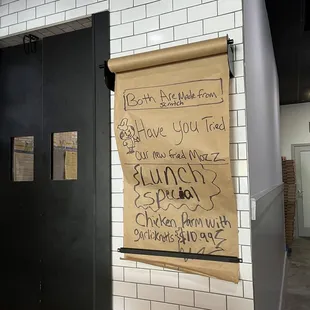 Both Are Made from
scratch
Have you Tried
our new fried Mozz
Lunch
Special
Chicken Parm with
garlic knots $10.99